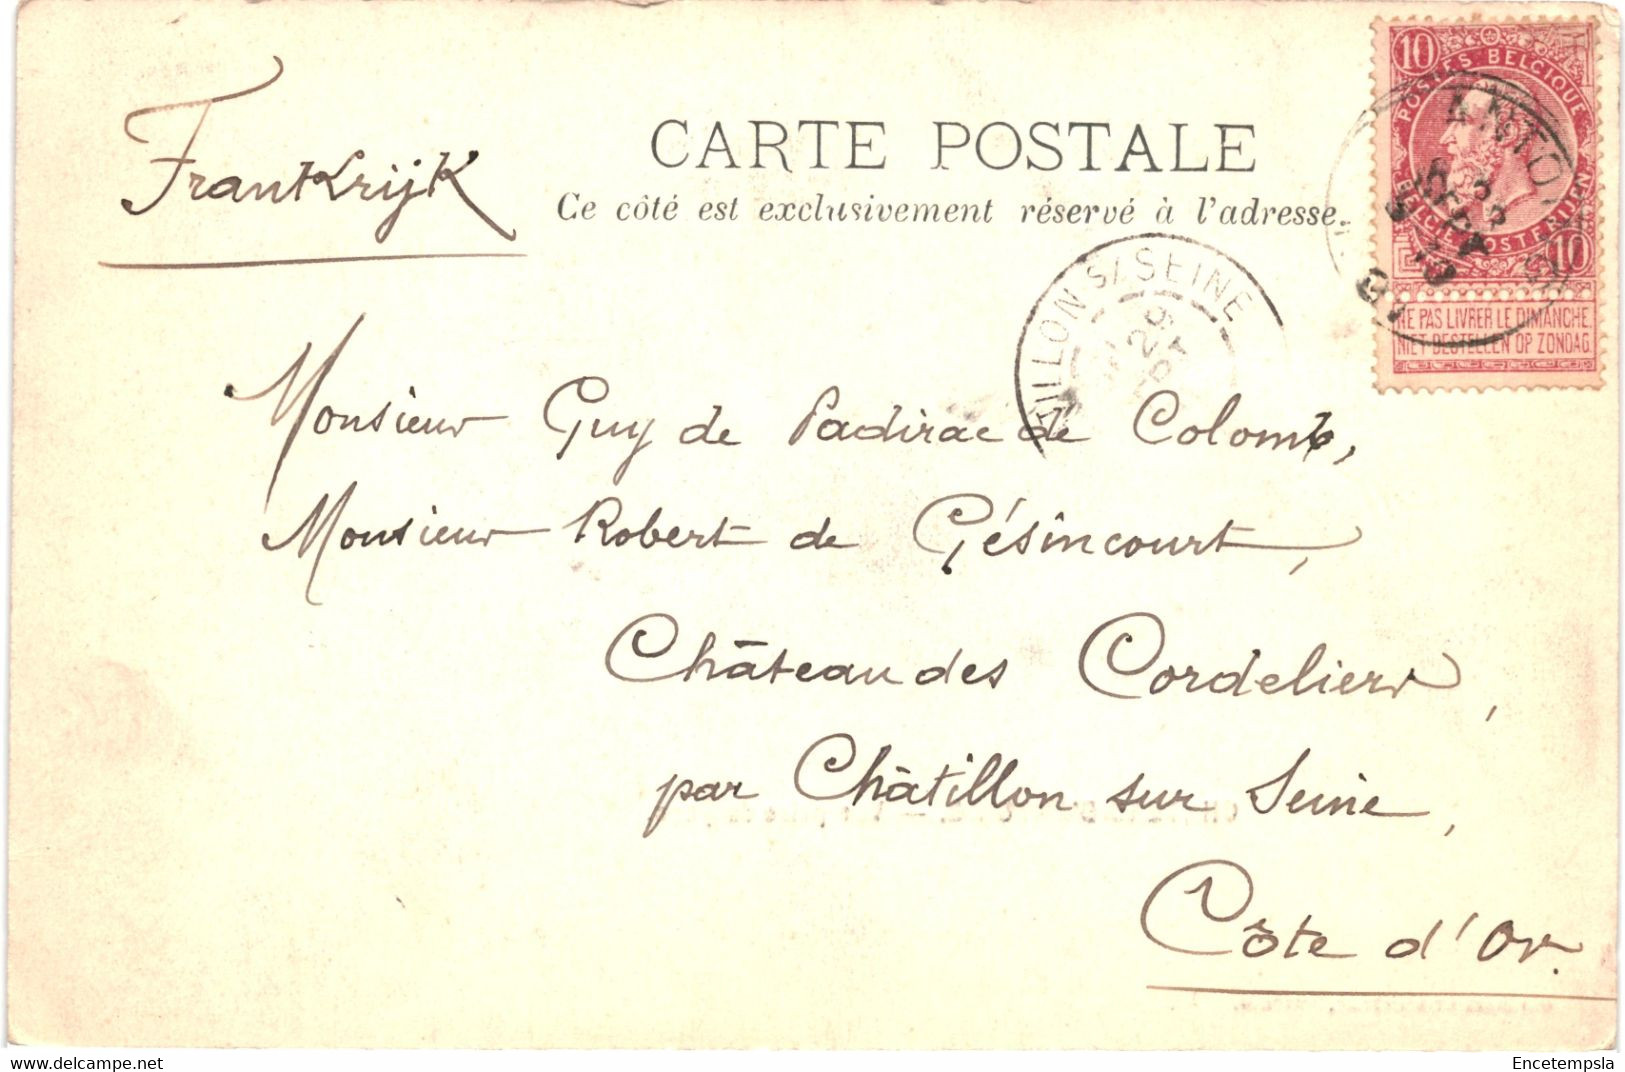 Frankrijk
CARTE POSTALE
Ce côté est exclusivement réservé à l'adresse.
10
POSTES BELGIQUE
BELGIE POSTERIJEN
10
NE PAS LIVRER LE DIMANCHE
NIET BESTELLEN OP ZONDAG
ANTOING
ILLON S/SEINE
29
Monsieur Guy de Padirac de Colomb,
Monsieur Robert de Gésincourt,
Château des Cordeliers,
par Châtillon sur Seine,
Côte d'Or.
https://www.delcampe.net
Encetempsla